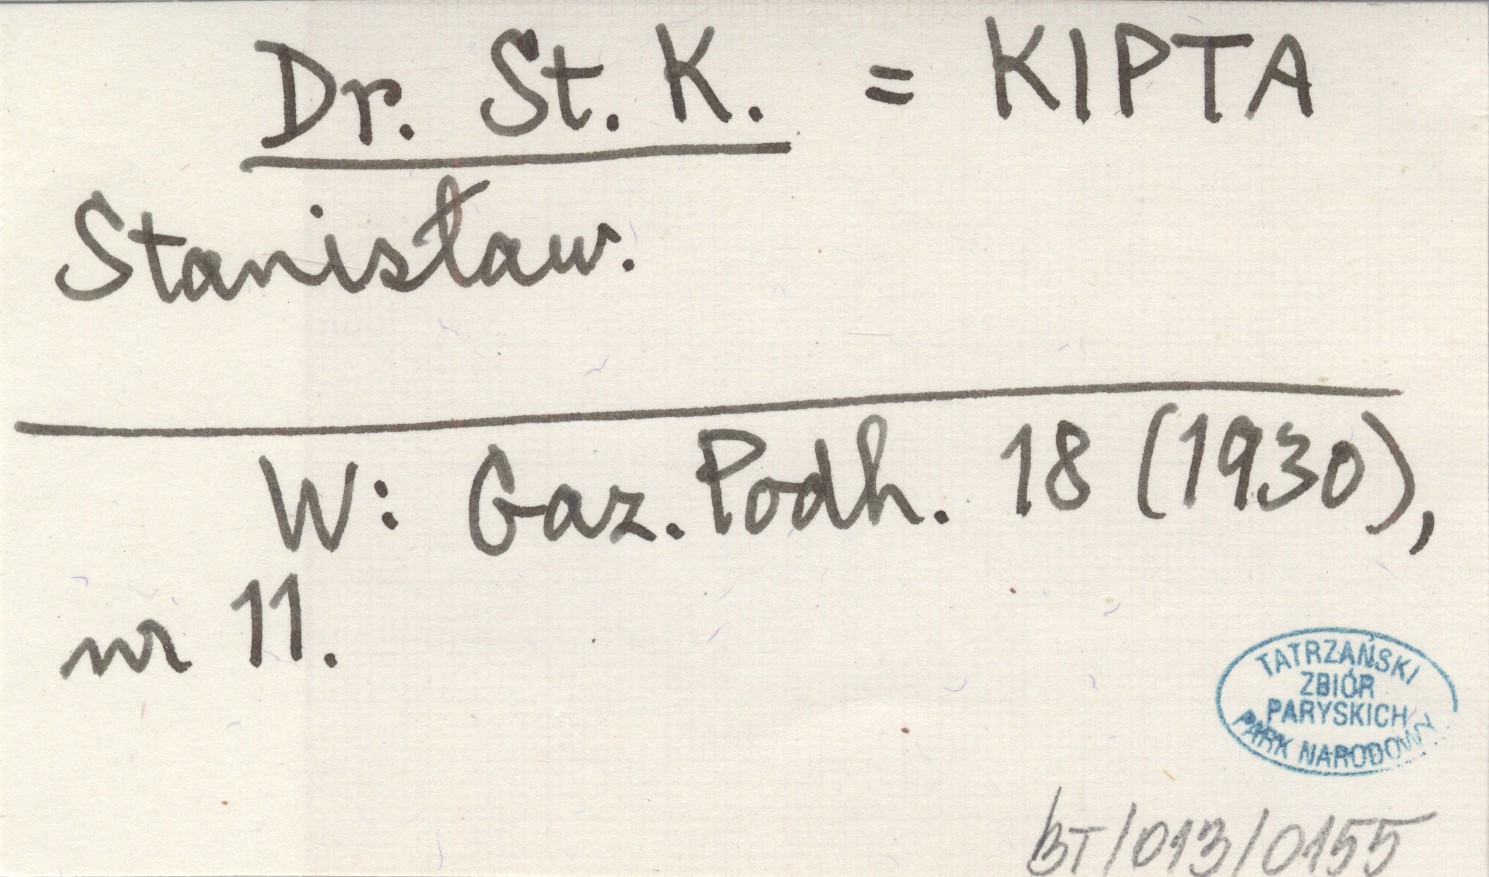 Dr. St. K. = KIPTA
Stanisław.
W: Gaz. Podh. 18 (1930),
nr 11.
TATRZAŃSKI
ZBIÓR
PARYSKICH
PARK NARODOWY
BT/013/0155